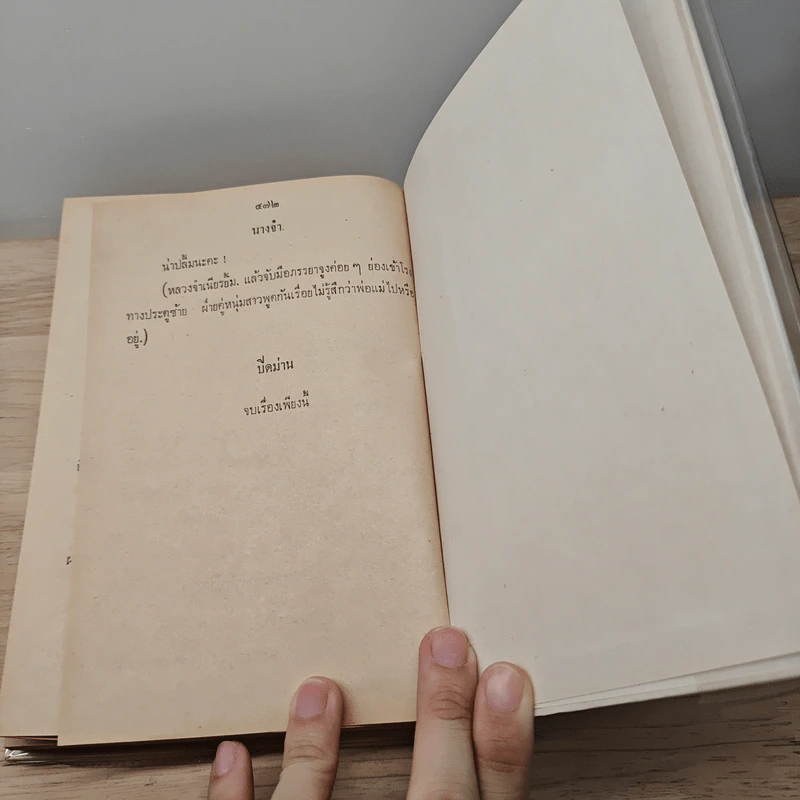 ๔๗๒
นางจำ.
น่าปลื้มนะคะ !
(หลวงจำเนียรยิ้ม, แล้วจับมือภรรยาจูงค่อย ๆ ย่องเข้าโรง
ทางประตูซ้าย ฝ่ายคู่หนุ่มสาวพูดกันเรื่อยไม่รู้สึกว่าพ่อแม่ไปหรือ
อยู่.)
ปิดม่าน
จบเรื่องเพียงนี้